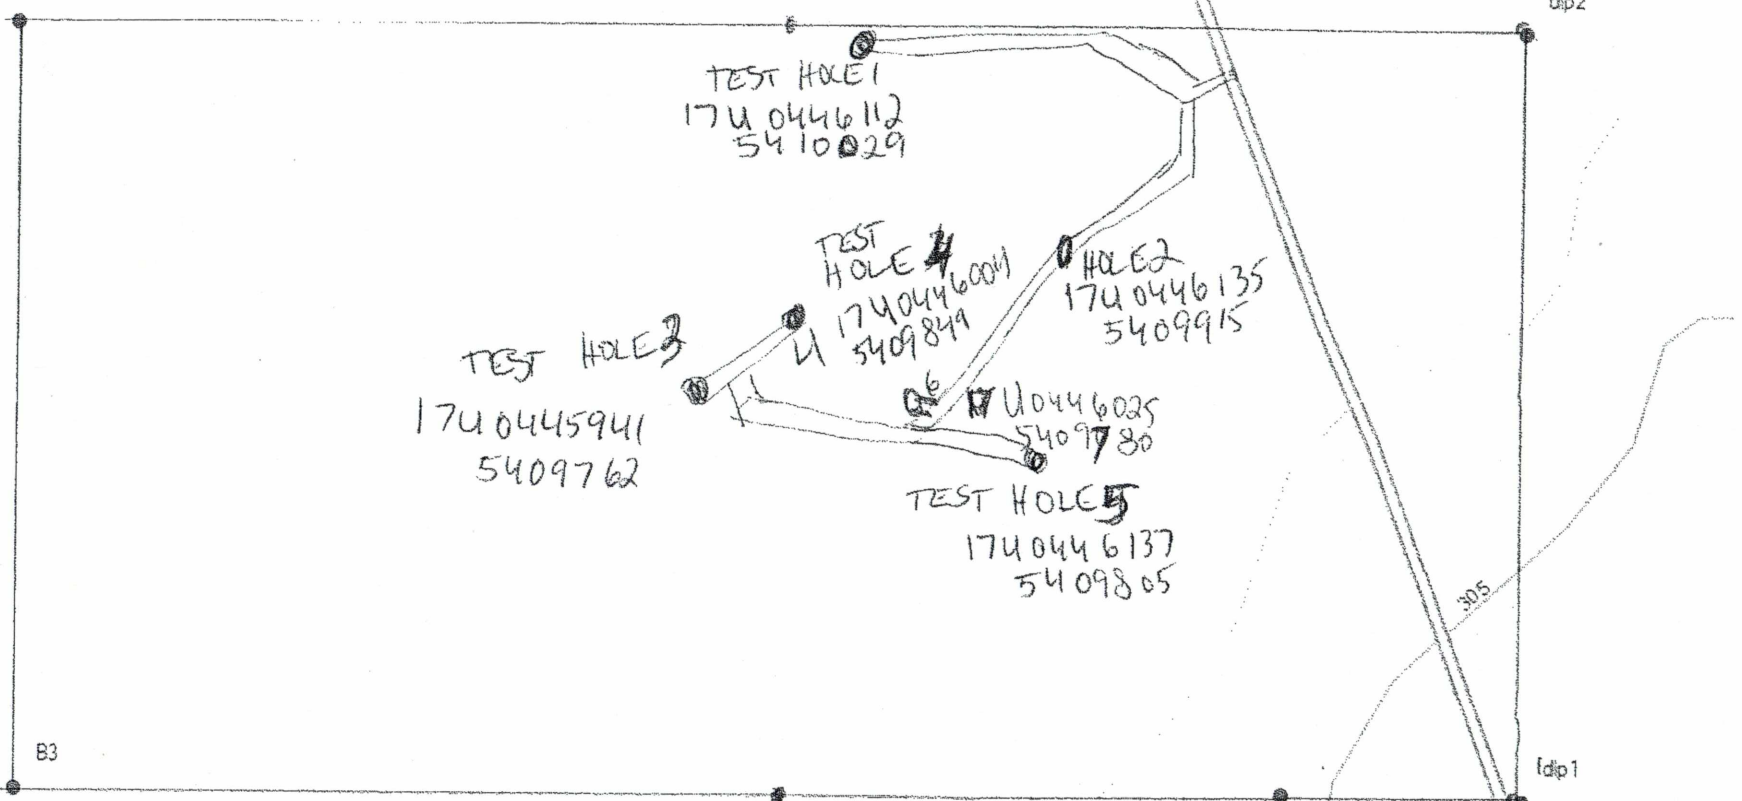 dlp2
TEST HOLE 1
17U 0446112
5410029
TEST
HOLE 4
17U0446004
5409849
U
HOLE 2
17U 0446135
5409915
TEST HOLE 3
17U 0445941
5409762
6
17 U0446025
5409780
TEST HOLE 5
17U 0446137
5409805
305
B3
fdlp1